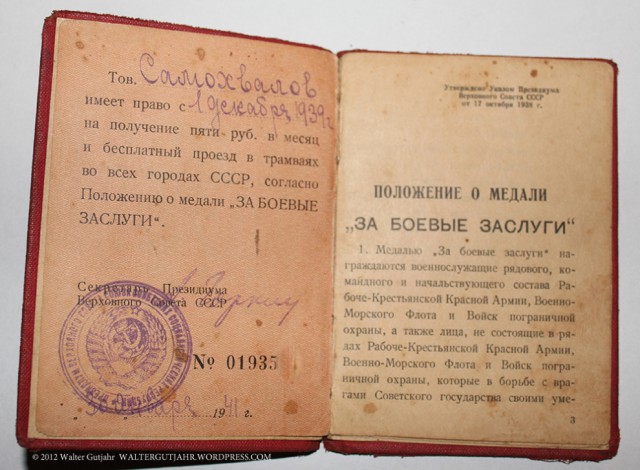 Тов. Самохвалов
имеет право с 1 декабря 1939 г.
на получение пяти руб. в месяц
и бесплатный проезд в трамваях
во всех городах СССР, согласно
Положению о медали „ЗА БОЕВЫЕ
ЗАСЛУГИ“.
Секретарь Президиума
Верховного Совета СССР
№ 01935
января 1941 г.
Утверждено Указом Президиума
Верховного Совета СССР
от 17 октября 1938 г.
ПОЛОЖЕНИЕ О МЕДАЛИ
„ЗА БОЕВЫЕ ЗАСЛУГИ“
1. Медалью „За боевые заслуги“ на-
граждаются военнослужащие рядового, ко-
майдного и начальствующего состава Ра-
боче-Крестьянской Красной Армии, Военно-
Морского Флота и Войск пограничной
охраны, а также лица, не состоящие в ря-
дах Рабоче-Крестьянской Красной Армии,
Военно-Морского Флота и Войск погра-
ничной охраны, которые в борьбе с вра-
гами Советского государства своими уме-
3
© 2012 Walter Gutjahr WALTERGUTJAHR.WORDPRESS.COM